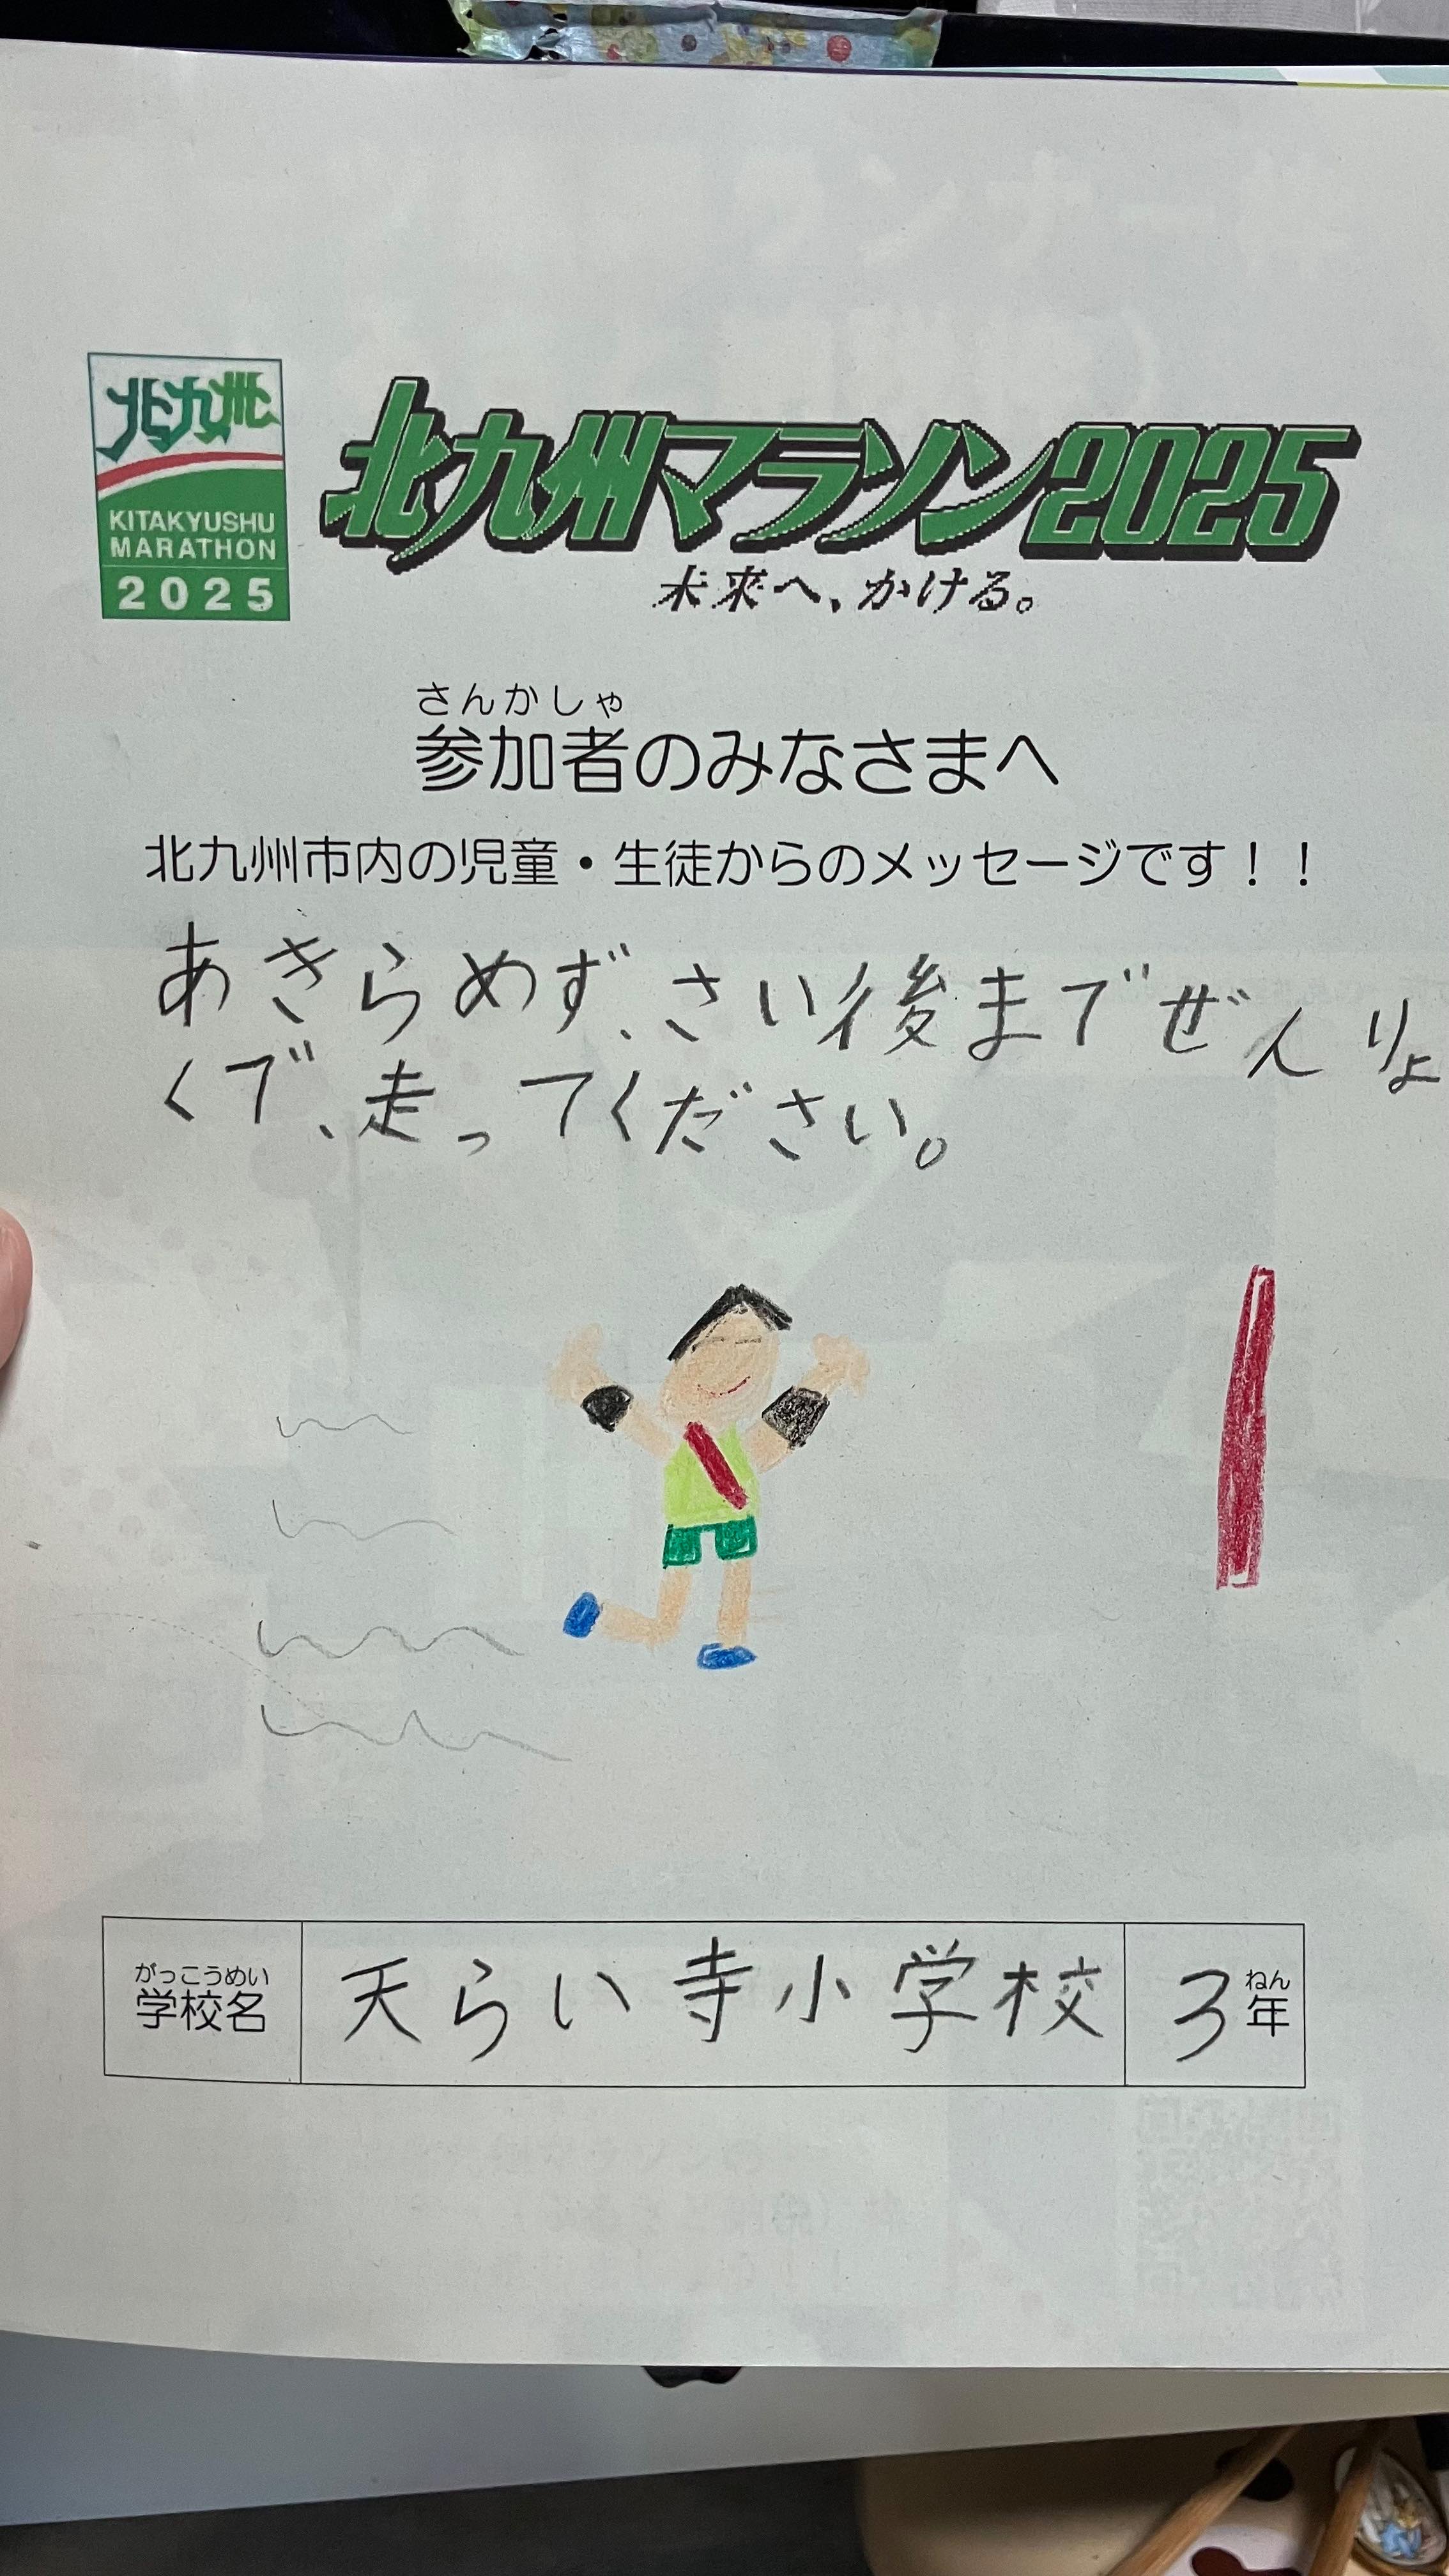 北九州
KITAKYUSHU
MARATHON
2025
北九州マラソン2025
未来へ、かける。
さんかしゃ
参加者のみなさまへ
北九州市内の児童・生徒からのメッセージです！！
あきらめず、さい後までぜんりょ
くで、走ってください。
がっこうめい
学校名
天らい寺小学校
3
ねん
年